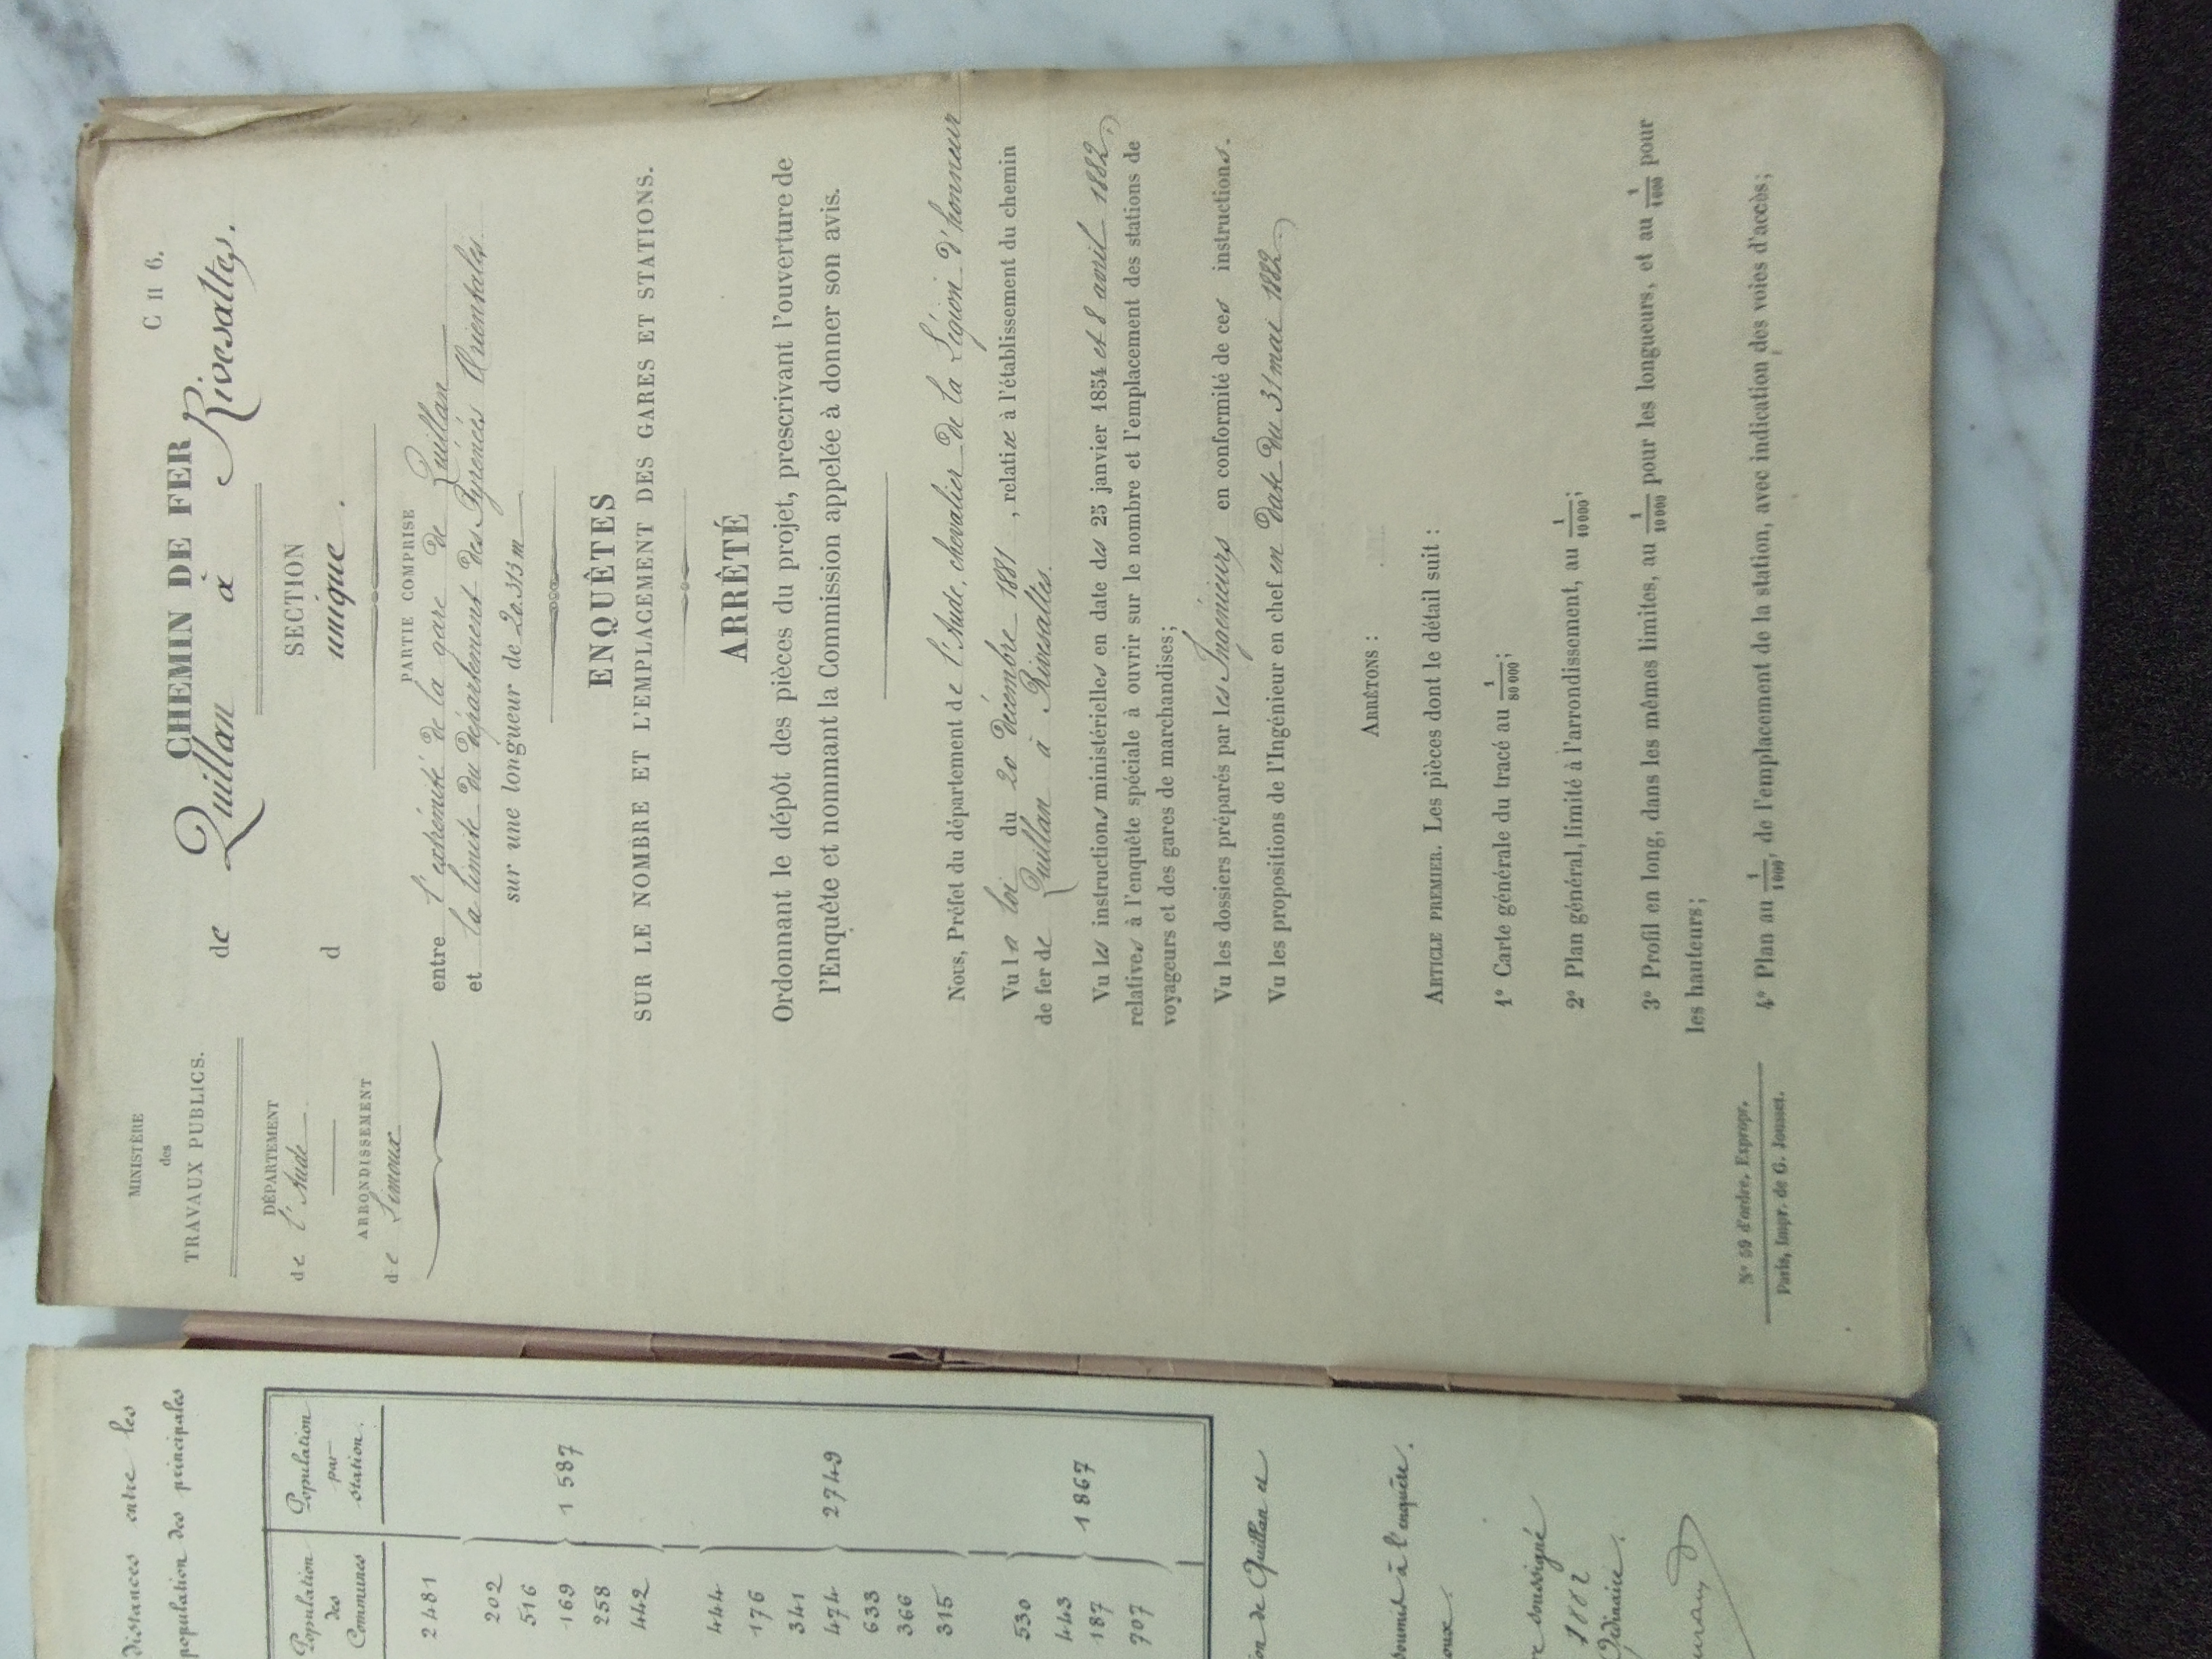 distances entre les
population des principales
Population
des
Communes
Population
par
station.
2481
202
516
169
258
442
1 587
444
176
341
474
633
366
315
2749
530
443
187
707
1 867
de Quillan et
soumis à l'enquête.
soussigné
1882
Ordinaire.
MINISTÈRE
des
TRAVAUX PUBLICS.
DÉPARTEMENT
de l'Aude
ARRONDISSEMENT
de Limoux
C II 6.
CHEMIN DE FER
de Quillan à Rivesaltes.
SECTION
d unique.
PARTIE COMPRISE
entre l'extrémité de la gare de Quillan
et la limite du département des Pyrénées Orientales
sur une longueur de 20.313 m
ENQUÊTES
SUR LE NOMBRE ET L'EMPLACEMENT DES GARES ET STATIONS.
ARRÊTÉ
Ordonnant le dépôt des pièces du projet, prescrivant l'ouverture de
l'Enquête et nommant la Commission appelée à donner son avis.
Nous, Préfet du département de l'Aude, chevalier de la Légion d'honneur
Vu la loi du 20 décembre 1881, relative à l'établissement du chemin
de fer de Quillan à Rivesaltes.
Vu les instructions ministérielles en date des 25 janvier 1854 et 8 avril 1882,
relatives à l'enquête spéciale à ouvrir sur le nombre et l'emplacement des stations de
voyageurs et des gares de marchandises;
Vu les dossiers préparés par les Ingénieurs en conformité de ces instructions.
Vu les propositions de l'Ingénieur en chef en date du 31 mai 1882
ARRÊTONS :
ARTICLE PREMIER. Les pièces dont le détail suit :
1° Carte générale du tracé au 1/80 000;
2° Plan général, limité à l'arrondissement, au 1/10 000;
3° Profil en long, dans les mêmes limites, au 1/10 000 pour les longueurs, et au 1/1 000 pour
les hauteurs;
4° Plan au 1/1 000, de l'emplacement de la station, avec indication des voies d'accès;
N° 59 d'ordre. Expropr.
Paris, Impr. de G. Jousset.